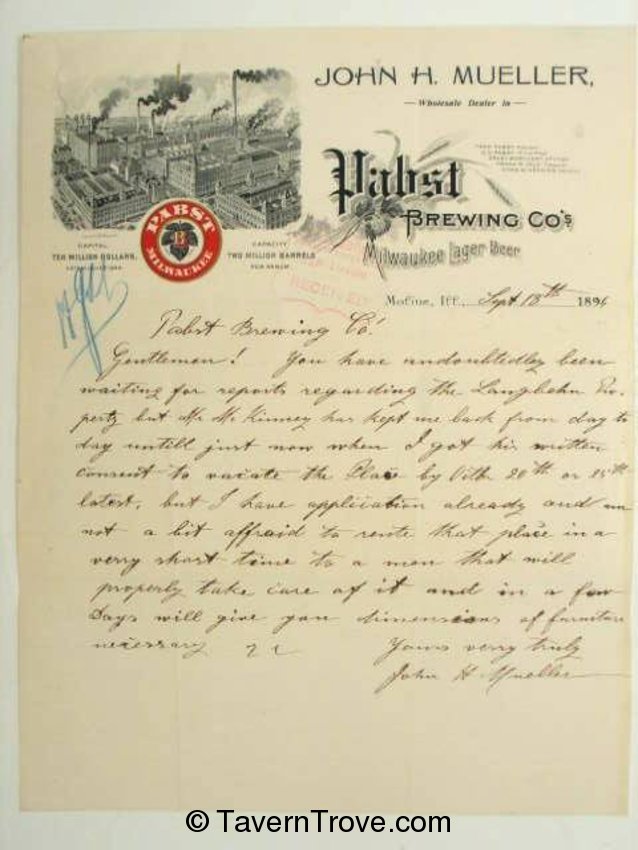 JOHN H. MUELLER,
Wholesale Dealer in
Pabst
BREWING CO'S
Milwaukee Lager Beer
PABST
B
MILWAUKEE
CAPITAL
TEN MILLION DOLLARS,
CAPACITY
TWO MILLION BARRELS
PER ANNUM
RECEIVED
Moline, Ill., Sept 18th 1896
Pabst Brewing Co!
Gentlemen! You have undoubtedley been
waiting for reports regarding the Langbehn Pro-
perty but Mr McKinney has kept me back from day to
day untill just now when I got his written
consent to vacate the Place by Octbr 20th or 25th
latest, but I have application already and am
not a bit affraid to rente that place in a
verry short time to a man that will
properly take care of it and in a few
Days will give you dimensions of furniture
necessary
Yours verry truly
John H Mueller
© TavernTrove.com